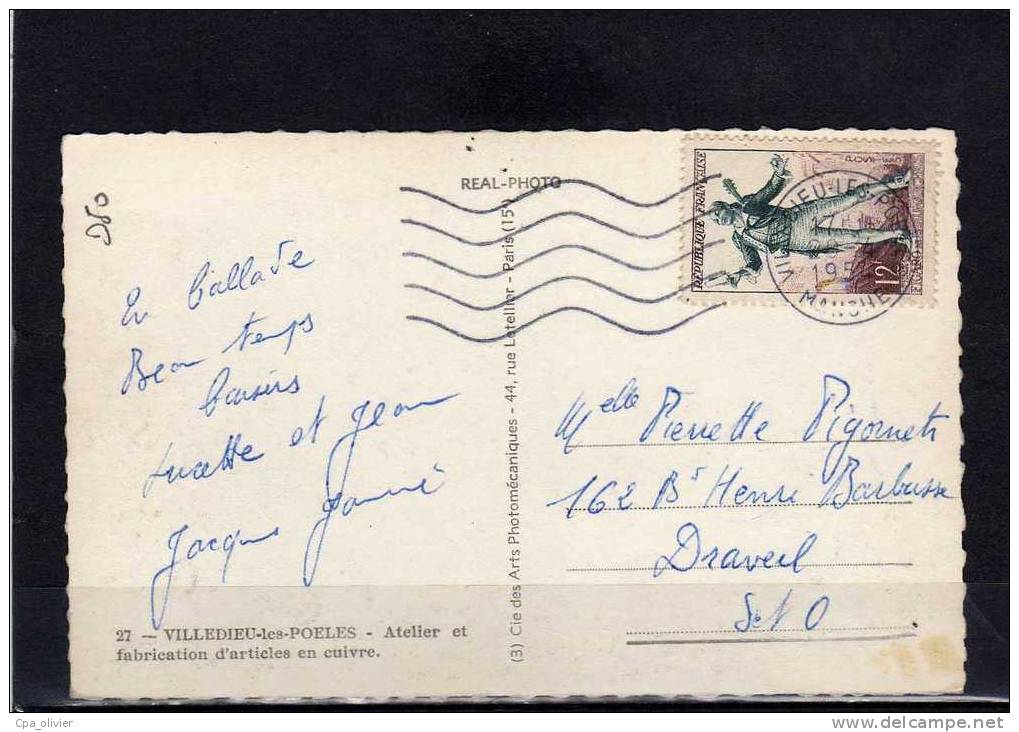 250
REAL-PHOTO
En ballade
Beau temps
baisers
Lucette et Jean
Jacques
(3) Cie des Arts Photomécaniques - 44, rue Letellier - Paris (15e)
27 — VILLEDIEU-les-POELES - Atelier et
fabrication d'articles en cuivre.
REPUBLIQUE FRANÇAISE
12F
VILLEDIEU-LES-POELES
MANCHE
Melle Pierrette Pigornets
162 Bd Henri Barbusse
Draveil
S et O
Cpa_olivier
www.delcampe.net